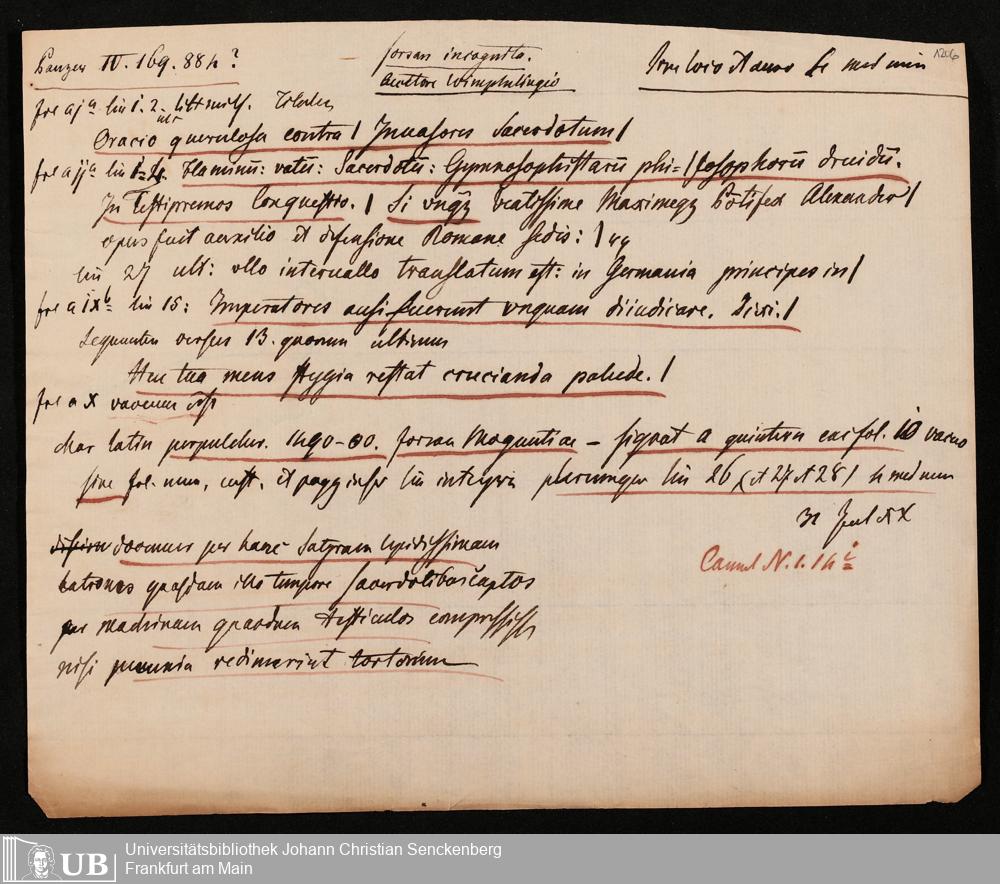 Panzer IV. 169. 884?
forsan incognita.
auctore Wimphelingio
sine loco et anno
1206
fol aja lin 1. 2.
Oracio querulosa contra / Inuasores Sacerdotum /
fol aija lin 1-4. Flaminū: vatū: Sacerdotū: Gymnosophistarū phi=/losophorū druidū.
In Testipremos Conquestio. / Si vnqȝ beatissime Maximeqȝ Pōtifex Alexander /
opus fuit auxilio et defensione Romane sedis: /
lin 27 ult: vllo interuallo translatum est: in Germania principes in /
fol a ixb lin 15: Imperatores ausi fuerunt vnquam diiudicare. Dixi. /
Sequuntur versus 13. quorum ultimus
Hec tua mens stygia restat crucianda palude. /
fol a X vacuum
char latin perpulcher. 1490-00. forsan Moguntiae — signat a quintern
fol. 10 vacuo
sine fol. num, cust. et pagg
lin integra plerumque lin 26 (et 27 et 28)
31 Jul
docemur per hanc Satyram lepidissimam
latrones quosdam illo tempore sacerdotibus captos
per machinam quandam testiculos compressisse
nisi pecunia redimerint